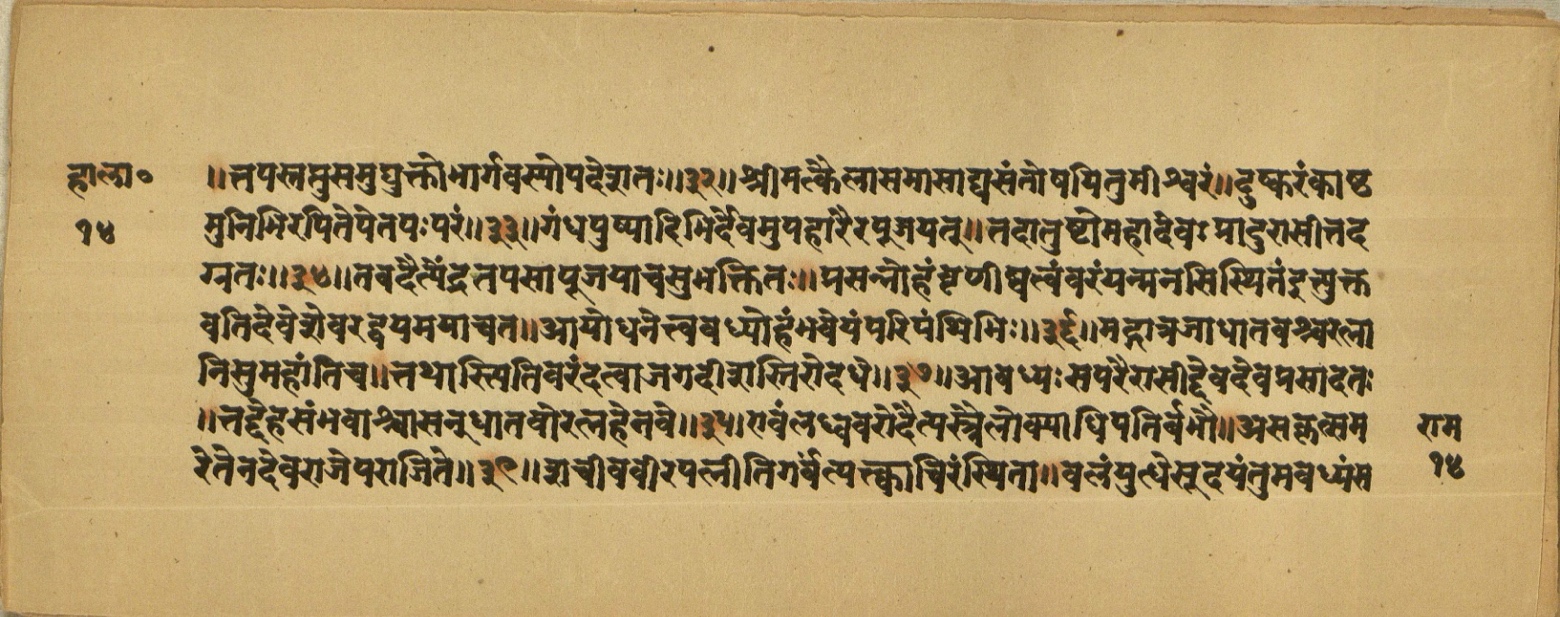 हाला०
१४
॥तपस्तप्तुसमुद्युक्तोभार्गवस्योपदेशतः॥३२॥श्रीमत्कैलासमासाद्यसंतोषयितुमीश्वरं॥दुष्करंकाष्ठ
मुनिभिरपितेपेतपःपरं॥३३॥गंधपुष्पादिभिर्देवमुपहारैरपूजयत्॥तदातुष्टोमहादेवःप्रादुरासीत्तद
ग्रतः॥३४॥तवदैत्येंद्रतपसापूजयाचसुभक्तितः॥प्रसन्नोहंवृणीष्वत्वंवरंयन्मनसिस्थितंइत्युक्त
वतिदेवेशेवरद्वयमयाचत॥आयोधनेत्ववध्योहंभवेयंपरिपंथिभिः॥३६॥मद्गात्रजाधातवश्चरत्ना
निसुमहांतिच॥तथास्त्वितिवरंदत्वाजगदीशस्तिरोदधे॥३७॥अवध्यःसपरैरासीद्देवदेवप्रसादतः
॥तद्देहसंभवाश्चासन्धातवोरत्नहेतवे॥३८॥एवंलब्धवरोदैत्यस्त्रैलोक्याधिपतिर्बभौ॥असकृत्सम
रेतेनदेवराजेपराजिते॥३९॥शचीववीरपत्नीतिगर्वंत्यक्त्वाचिरंस्थिता॥बलंयुत्धेसूदयंतुमवध्यंस
राम
१४